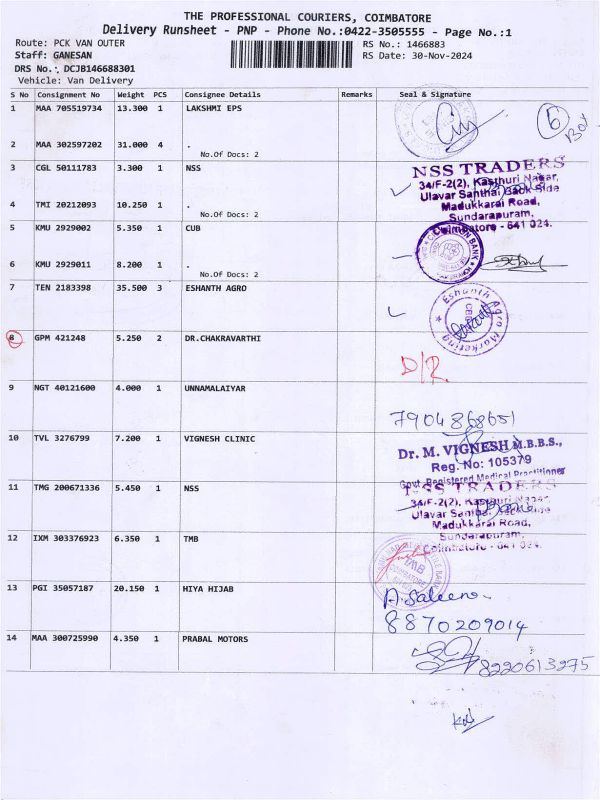 THE PROFESSIONAL COURIERS, COIMBATORE
Delivery Runsheet - PNP - Phone No.:0422-3505555 - Page No.:1
Route: PCK VAN OUTER
RS No.: 1466883
Staff: GANESAN
RS Date: 30-Nov-2024
DRS No.: DCJB146688301
Vehicle: Van Delivery
S No Consignment No Weight PCS Consignee Details Remarks Seal & Signature
1 MAA 705519734 13.300 1 LAKSHMI EPS
6 Box
2 MAA 302597202 31.000 4 .
No.Of Docs: 2
3 CGL 50111783 3.300 1 NSS
NSS TRADERS
34/F-2(2), Kasthuri Nagar,
Ulavar Santhai Back Side
Madukkarai Road,
Sundarapuram,
Coimbatore - 641 024.
4 TMI 20212093 10.250 1 .
No.Of Docs: 2
5 KMU 2929002 5.350 1 CUB
6 KMU 2929011 8.200 1 .
No.Of Docs: 2
7 TEN 2183398 35.500 3 ESHANTH AGRO
Eshanth Agro Marketing
CBE
8 GPM 421248 5.250 2 DR.CHAKRAVARTHI
D/R.
9 NGT 40121600 4.000 1 UNNAMALAIYAR
7904868651
10 TVL 3276799 7.200 1 VIGNESH CLINIC
Dr. M. VIGNESH M.B.B.S.,
Reg. No: 105379
Govt. Registered Medical Practitioner
11 TMG 200671336 5.450 1 NSS
NSS TRADERS
34/F-2(2), Kasthuri Nagar,
Ulavar Santhai Back Side
Madukkarai Road,
Sundarapuram,
Coimbatore - 641 024.
12 IXM 303376923 6.350 1 TMB
TMB
COIMBATORE
13 PGI 35057187 20.150 1 HIYA HIJAB
A. Saleena
8870209014
14 MAA 300725990 4.350 1 PRABAL MOTORS
8220613275